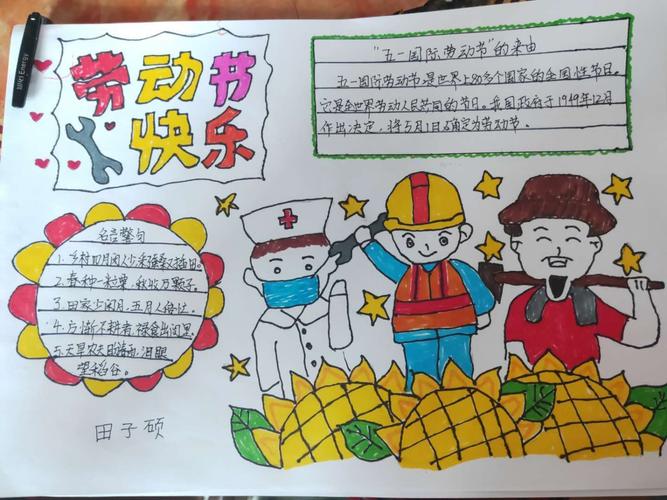 劳动节
快乐
"五一国际劳动节"的来由
五一国际劳动节是世界上80多个国家的全国性节日。
它是全世界劳动人民共同的节日。我国政府于1949年12月
作出决定，将5月1日确定为劳动节。
名言警句
1.乡村四月闲人少，才了蚕桑又插田。
2.春种一粒粟，秋收万颗子。
3.田家少闲月，五月人倍忙。
4.方惭不耕者，禄食出闾里
5.天旱农夫日
泪眼
望稻谷。
田子硕
Energy